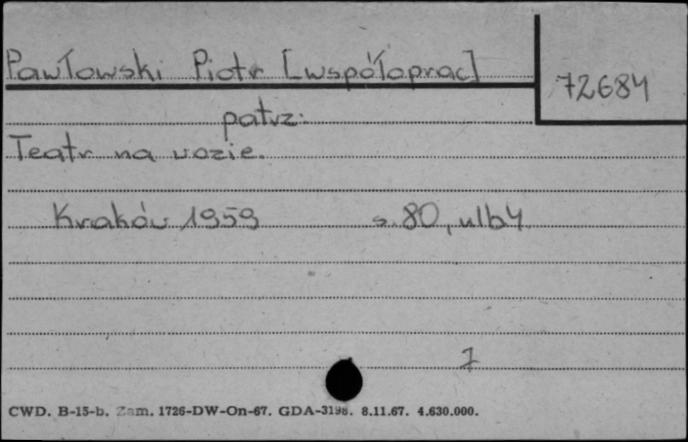 Pawłowski Piotr [współoprac]
72684
patrz:
Teatr na wozie.
Kraków 1959 s. 80, nlb4
7
CWD. B-15-b. Zam. 1726-DW-On-67. GDA-3198. 8.11.67. 4.630.000.